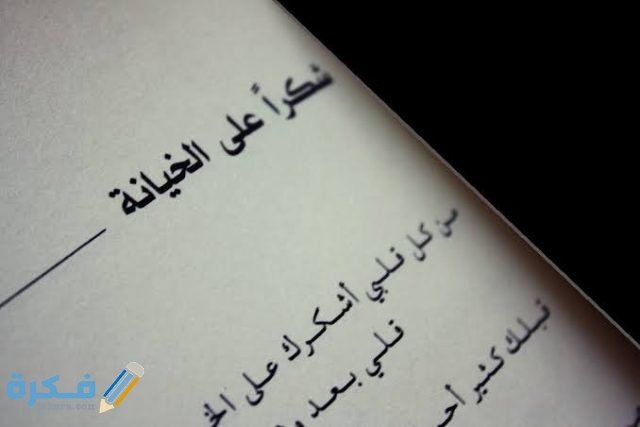 شكراً على الخيانة
من كل قلبي أشكرك على
قلبي بعد
قبلك كثير
فكرة